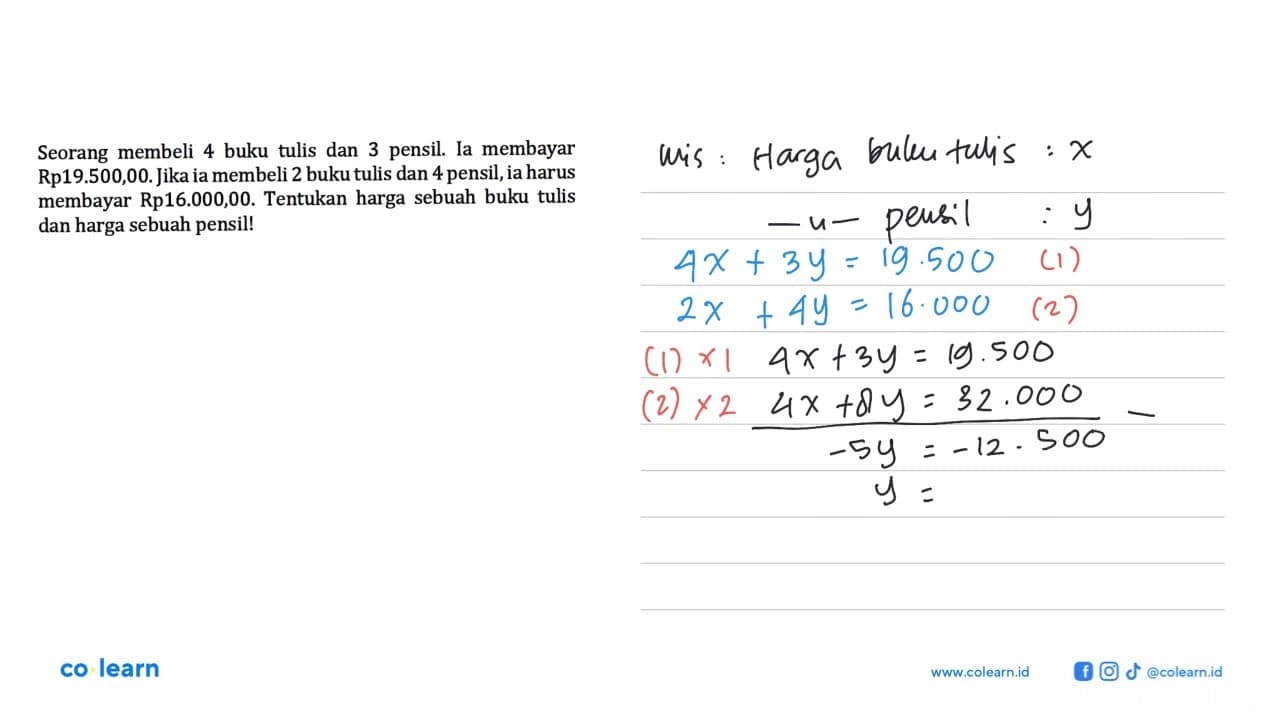 Seorang membeli 4 buku tulis dan 3 pensil. Ia membayar
Rp19.500,00. Jika ia membeli 2 buku tulis dan 4 pensil, ia harus
membayar Rp16.000,00. Tentukan harga sebuah buku tulis
dan harga sebuah pensil!
Mis : Harga buku tulis : x
—u— pensil : y
4x + 3y = 19.500 (1)
2x + 4y = 16.000 (2)
(1) x1 4x + 3y = 19.500
(2) x2 4x + 8y = 32.000 —
-5y = -12.500
y =
co learn
www.colearn.id
@colearn.id